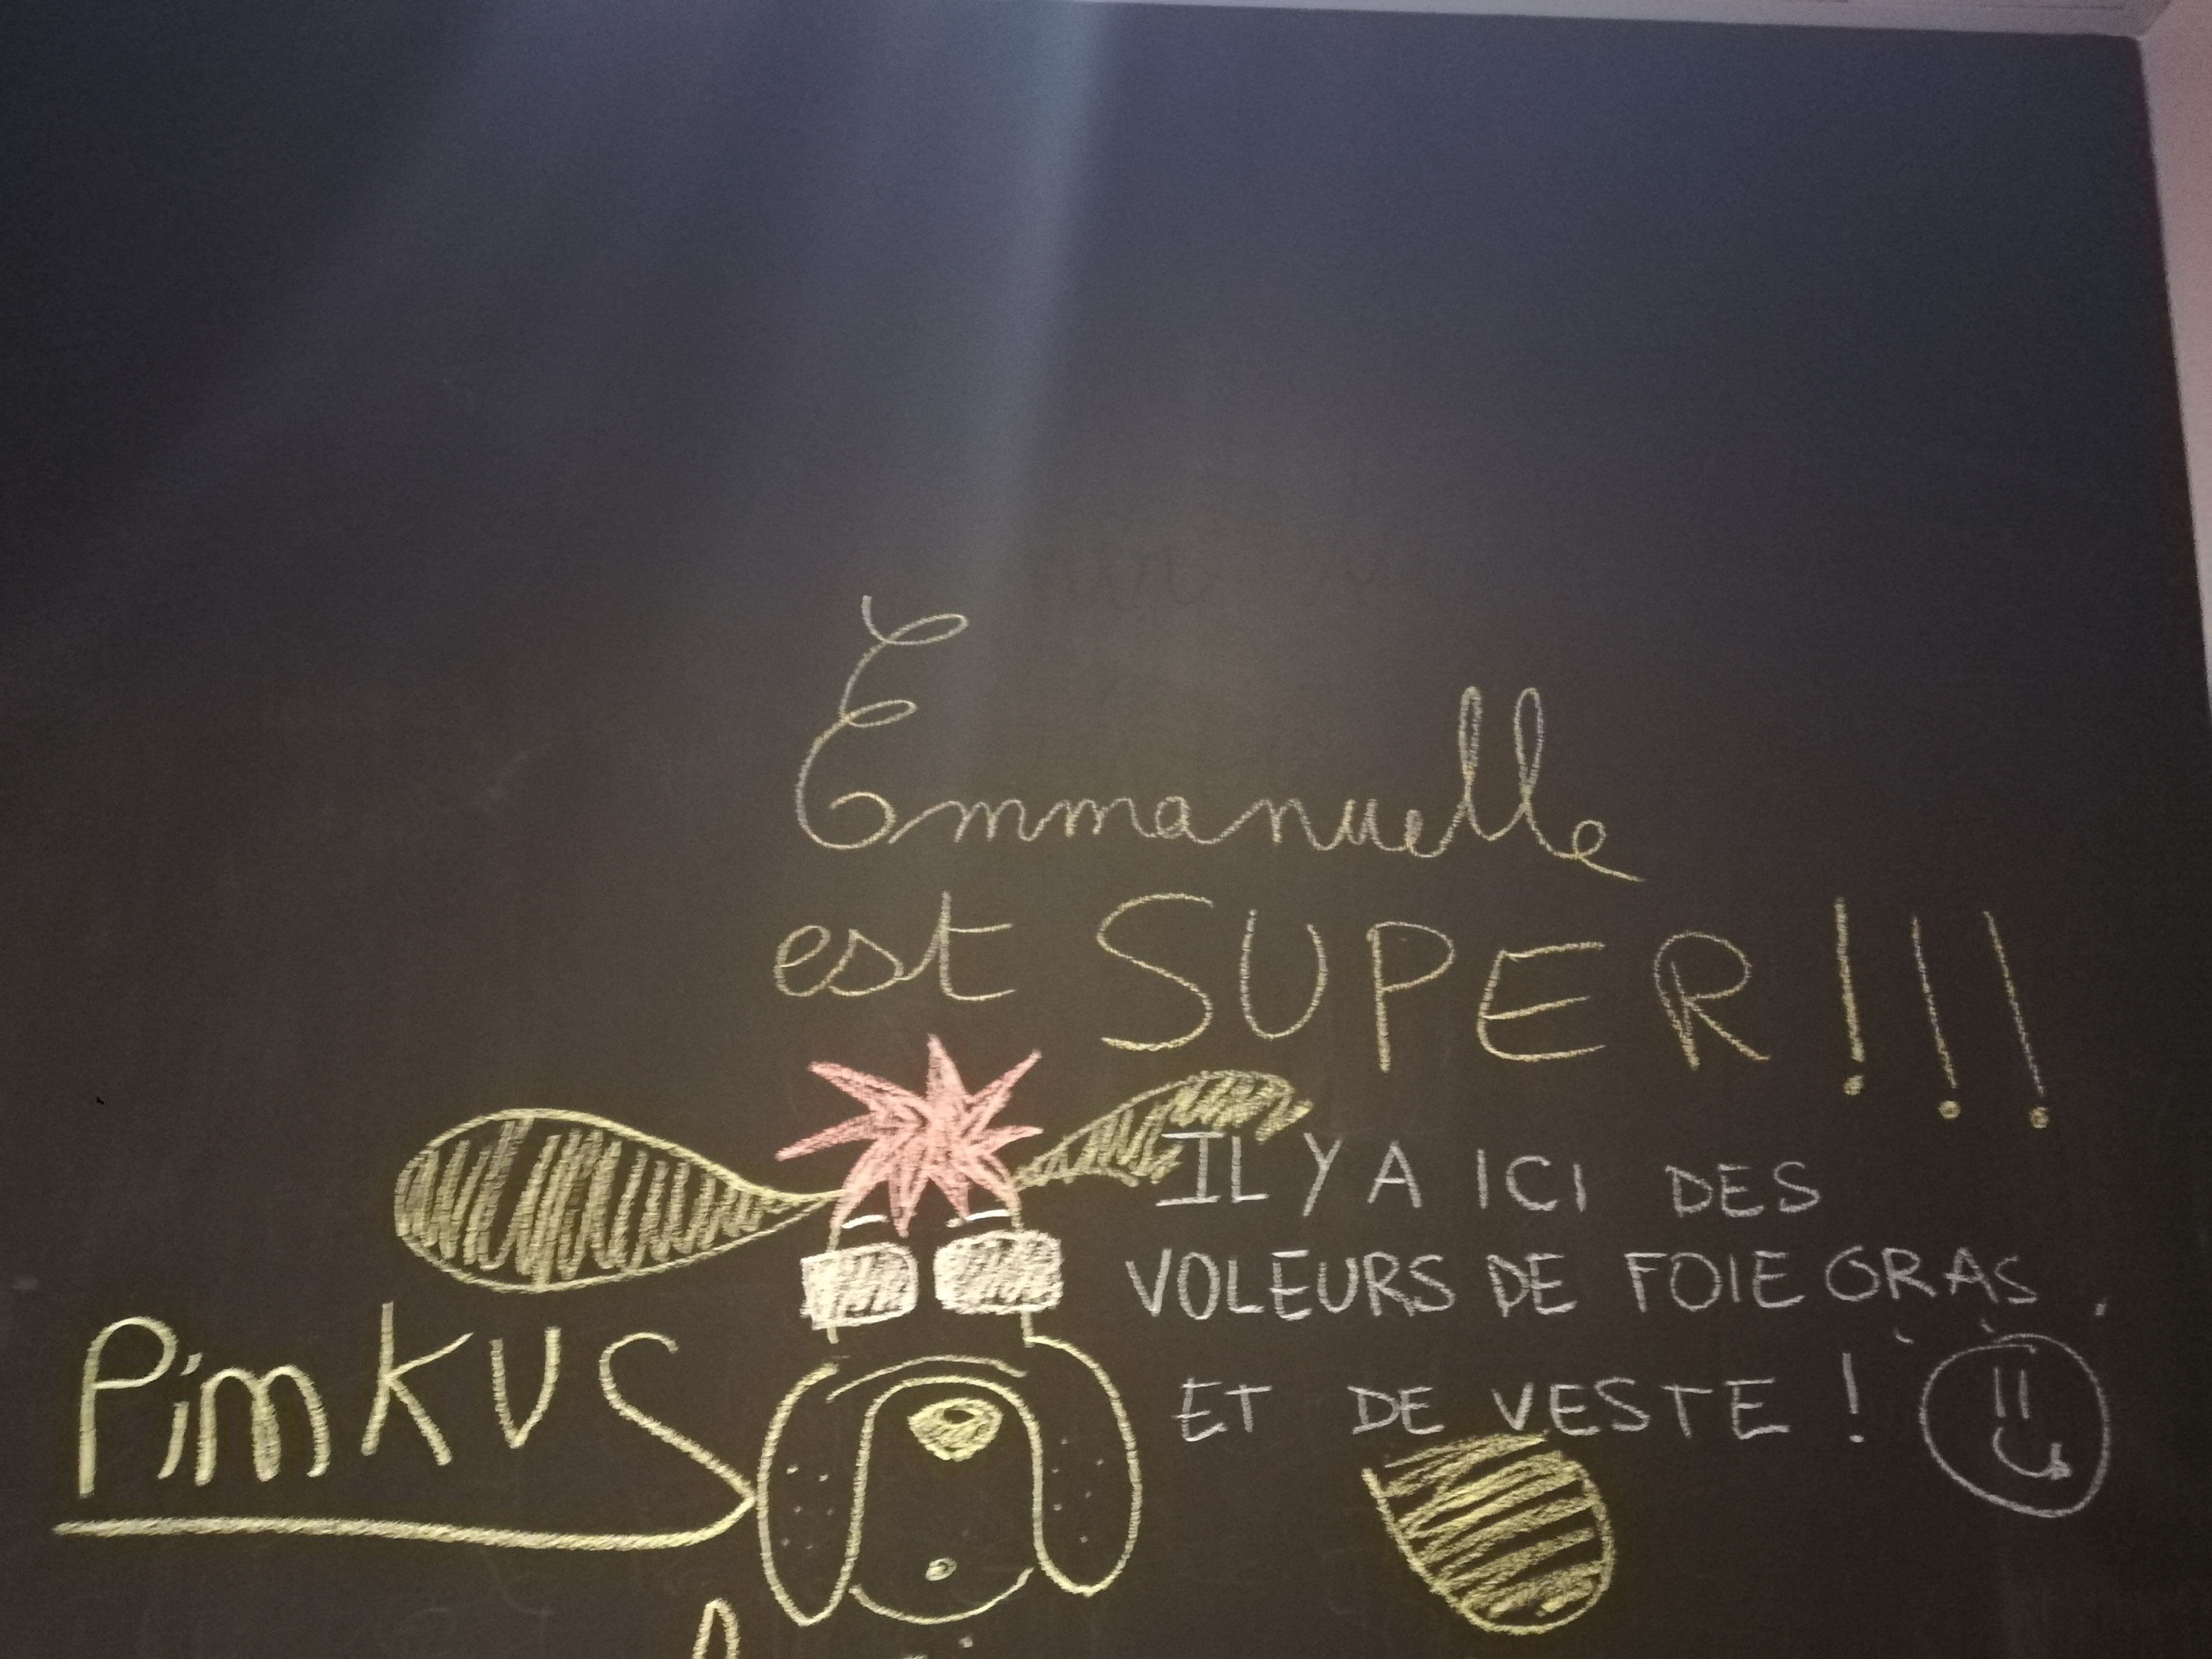 Emmanuelle
est SUPER !!!
IL Y A ICI DES
VOLEURS DE FOIE GRAS
ET DE VESTE !
PimKUS